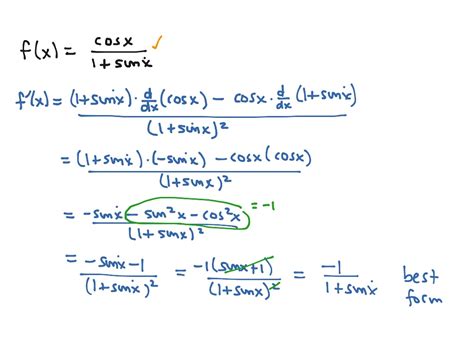 f(x) = cosx / 1 + sinx ✓
f'(x) = (1+sinx) · d/dx (cosx) − cosx · d/dx (1+sinx) / (1+sinx)²
= (1+sinx) · (−sinx) − cosx (cosx) / (1+sinx)²
= −sinx − sin²x − cos²x / (1+sinx)² = −1
= −sinx −1 / (1+sinx)² = −1(sinx+1) / (1+sinx)² = −1 / 1+sinx best form